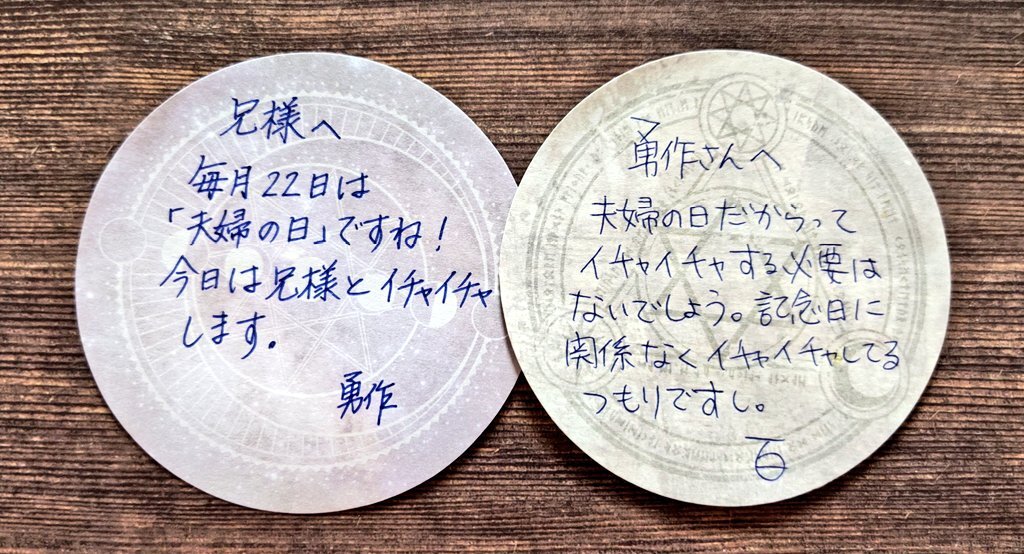 兄様へ
毎月22日は
「夫婦の日」ですね！
今日は兄様とイチャイチャ
します。
勇作
勇作さんへ
夫婦の日だからって
イチャイチャする必要は
ないでしょう。記念日に
関係なくイチャイチャしてる
つもりですし。
百